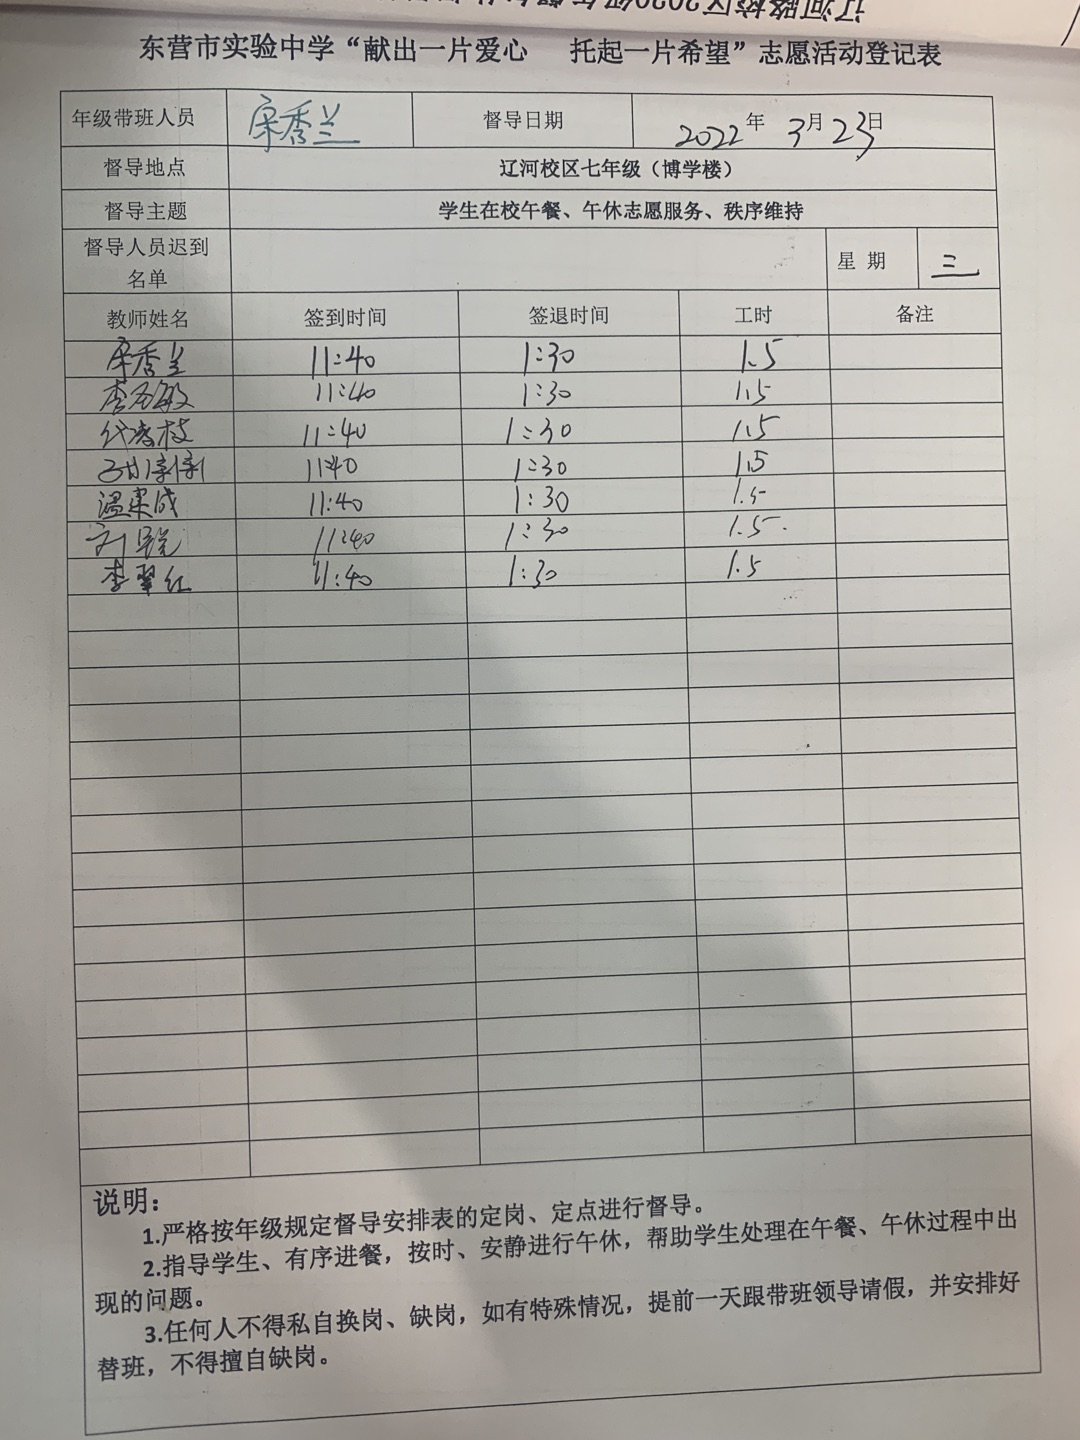 东营市实验中学“献出一片爱心 托起一片希望”志愿活动登记表
年级带班人员 宋秀兰 督导日期 2022年 3月23日
督导地点 辽河校区七年级（博学楼）
督导主题 学生在校午餐、午休志愿服务、秩序维持
督导人员迟到
名单 星 期 三
教师姓名 签到时间 签退时间 工时 备注
宋秀兰 11:40 1:30 1.5
11:40 1:30 1.5
11:40 1:30 1.5
11:40 1:30 1.5
11:40 1:30 1.5
11:40 1:30 1.5.
李翠红 11:40 1:30 1.5
说明：
1.严格按年级规定督导安排表的定岗、定点进行督导。
2.指导学生、有序进餐，按时、安静进行午休，帮助学生处理在午餐、午休过程中出
现的问题。
3.任何人不得私自换岗、缺岗，如有特殊情况，提前一天跟带班领导请假，并安排好
替班，不得擅自缺岗。